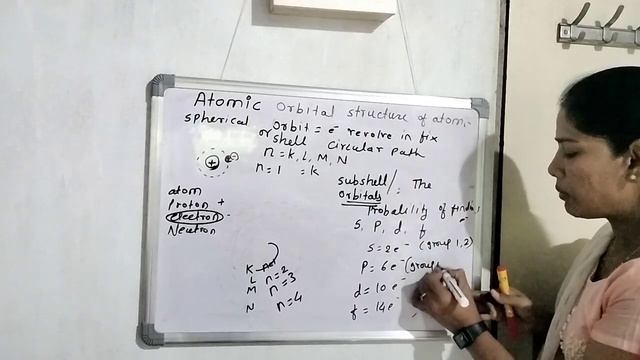 Atomic Orbital structure of atom:-
spherical
Orbit = e⁻ revolve in fix
or shell circular path
n = K, L, M, N
n = 1 = K
+
atom
Proton +
electron -
Neutron
subshell/ : The
orbitals
Probability of
s, p, d, f
s = 2e⁻ (group 1, 2)
p = 6e⁻ (group
d = 10 e⁻
f = 14 e⁻
K
L n = 2
M n = 3
N n = 4